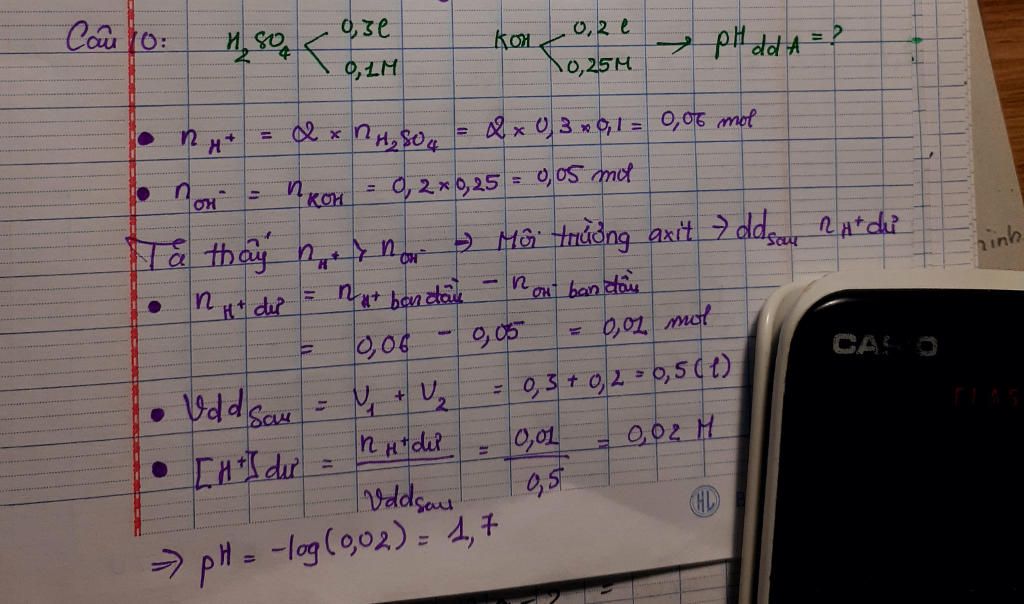 Câu 10: H₂SO₄ < 0,3l 0,1M KOH < 0,2l 0,25M → pH dd A = ?
• n H⁺ = 2 × n H₂SO₄ = 2 × 0,3 × 0,1 = 0,06 mol
• n OH⁻ = n KOH = 0,2 × 0,25 = 0,05 mol
Ta thấy n H⁺ > n OH⁻ → Môi trường axit → dd sau n H⁺ dư
• n H⁺ dư = n H⁺ ban đầu − n OH⁻ ban đầu
= 0,06 − 0,05 = 0,01 mol
• Vdd sau = V₁ + V₂ = 0,3 + 0,2 = 0,5 (l)
• [H⁺] dư = n H⁺ dư / Vdd sau = 0,01 / 0,5 = 0,02 M
⇒ pH = -log(0,02) = 1,7
HL
CASIO